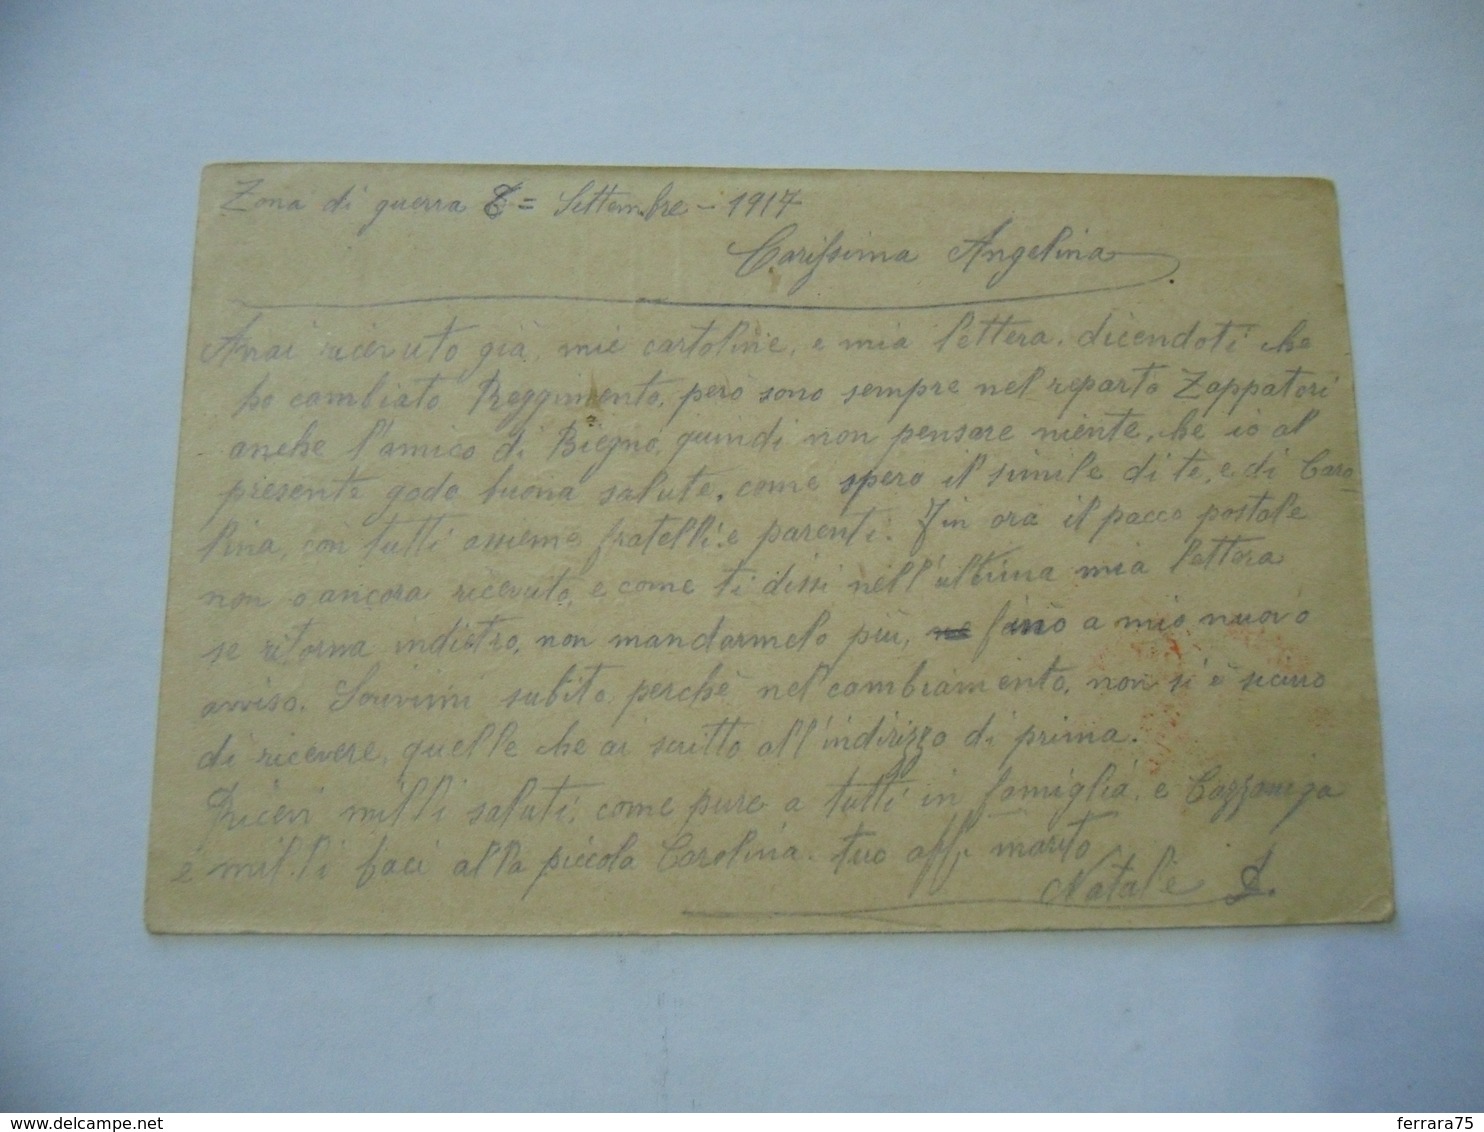 Zona di guerra = Settembre - 1917
Carissima Angelina
Avrai ricevuto già, mie cartoline, e mia lettera. dicendoti che
ho cambiato Reggimento, però sono sempre nel reparto Zappatori
anche l'amico di Biegno, quindi non pensare niente, che io al
presente godo buona salute, come spero il simile di te, e di Caro-
lina, con tutti assieme fratelli e parenti. Fin ora il pacco postale
non o ancora ricevuto, e come ti dissi nell'ultima mia lettera
se ritorna indietro, non mandarmelo più, fino a mio nuovo
avviso. Scrivimi subito perchè nel cambiamento, non si è sicuro
di ricevere, quelle che ai scritto all'indirizzo di prima.
Ricevi milli saluti, come pure a tutti in famiglia, e Cazzaniga
e milli baci alla piccola Carolina. tuo aff. marito
Natale
ferrara75